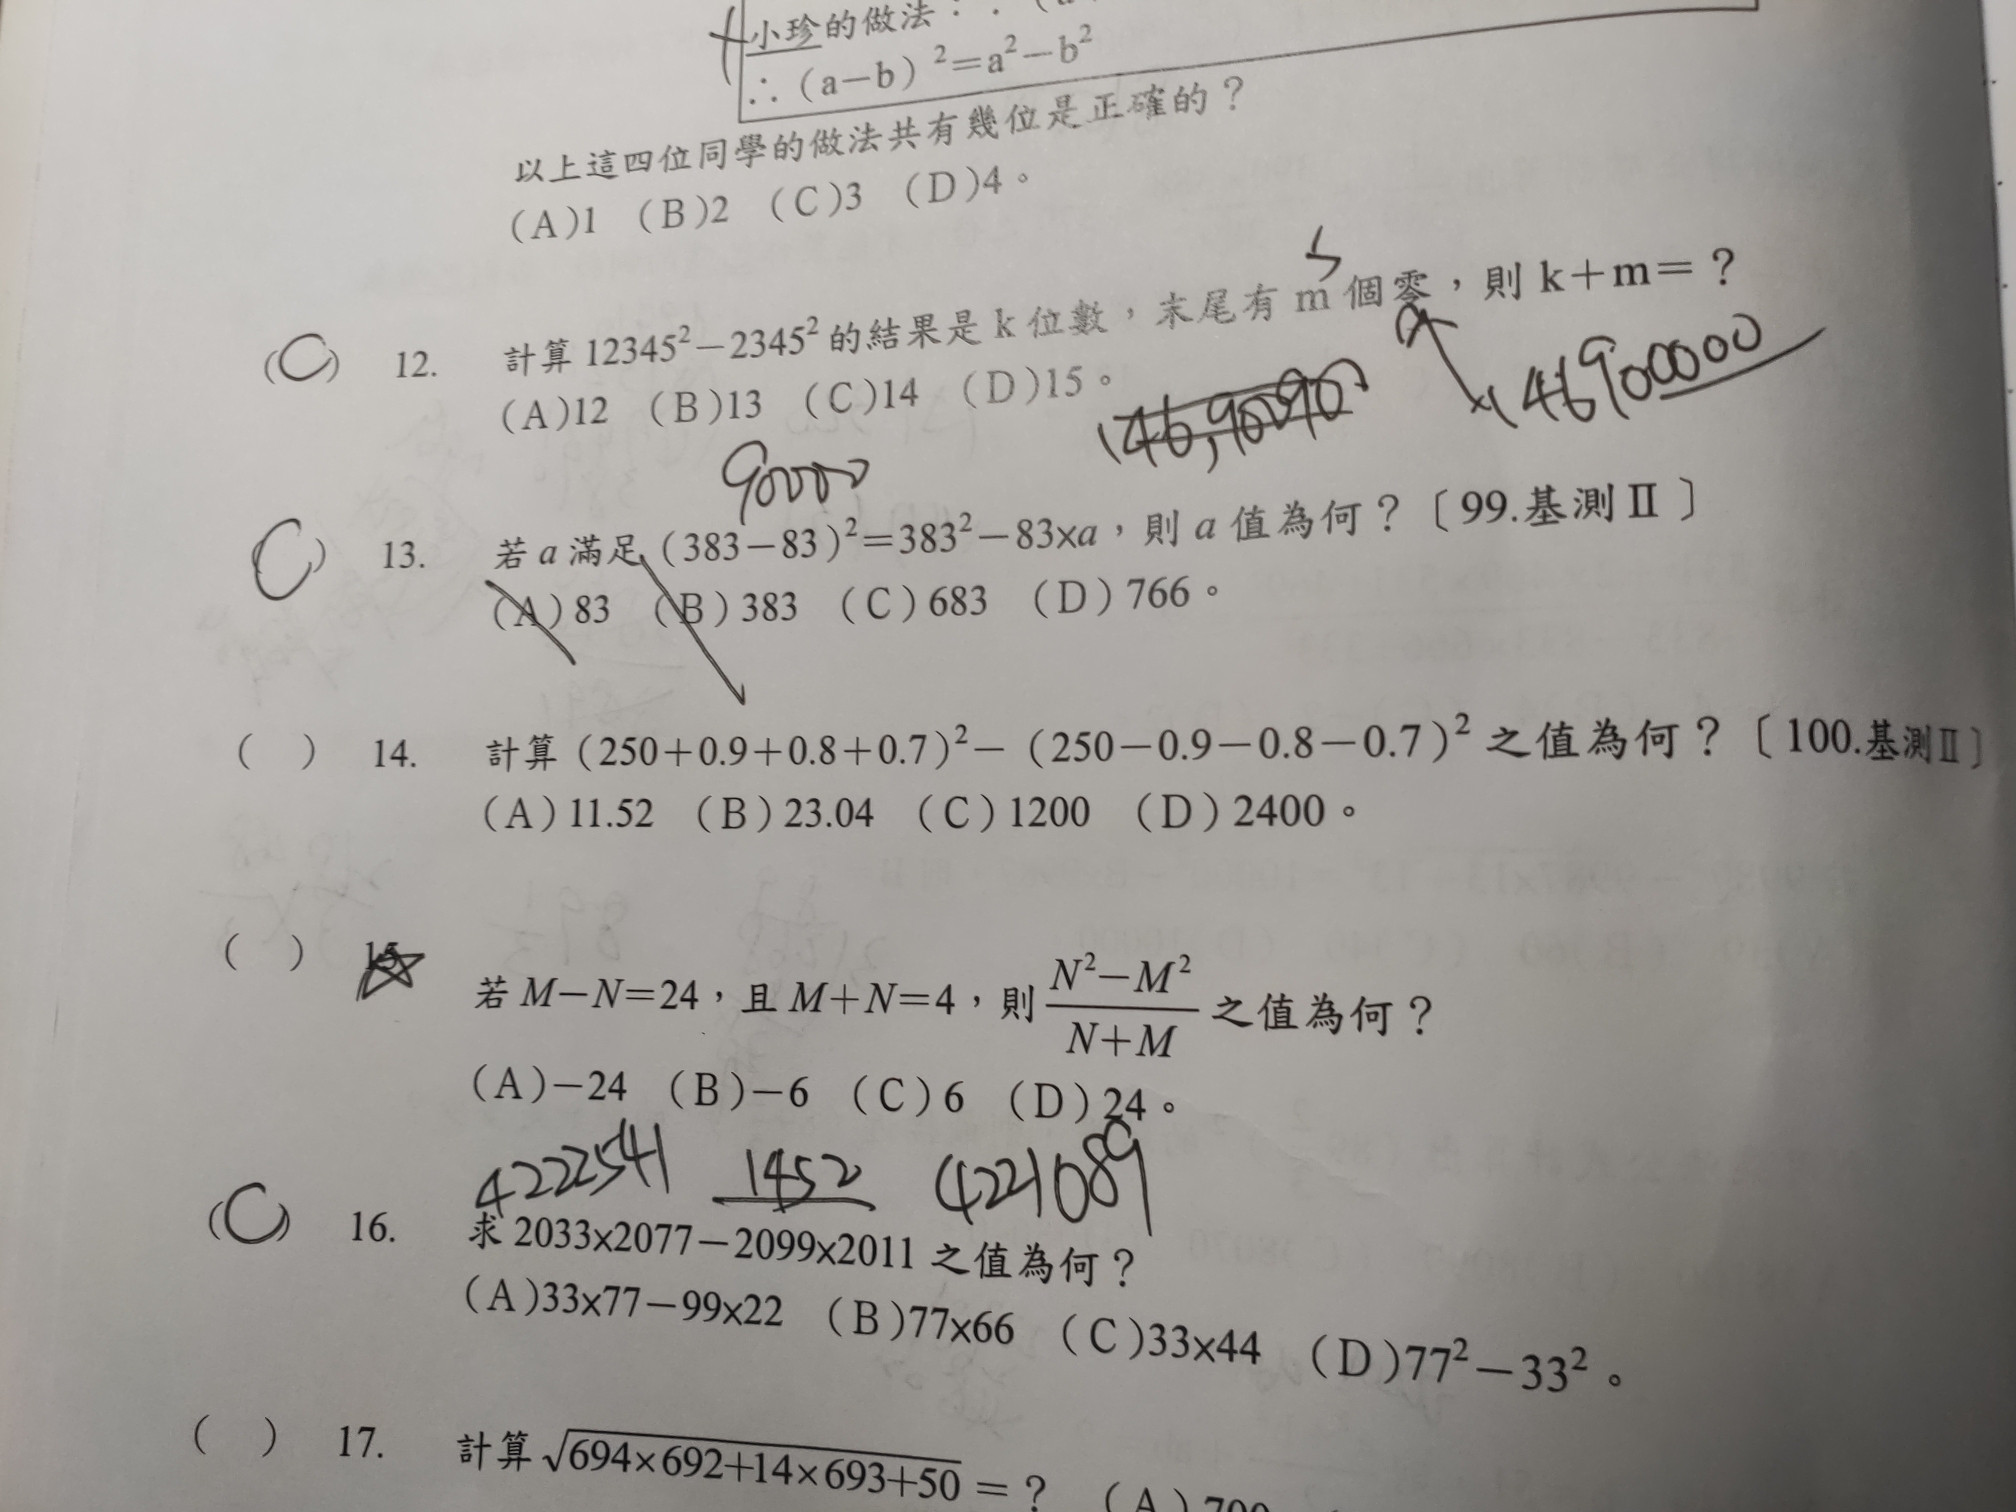 小珍的做法：∵（a
∴（a－b）²＝a²－b²
以上這四位同學的做法共有幾位是正確的？
(A)1 (B)2 (C)3 (D)4。
5
(C) 12. 計算 12345²－2345² 的結果是 k 位數，末尾有 m 個零，則 k＋m＝？
(A)12 (B)13 (C)14 (D)15。
146900000
90000
(C) 13. 若 a 滿足（383－83）²＝383²－83×a，則 a 值為何？〔99.基測Ⅱ〕
(A) 83 (B) 383 (C) 683 (D) 766。
( ) 14. 計算（250＋0.9＋0.8＋0.7）²－（250－0.9－0.8－0.7）² 之值為何？〔100.基測Ⅱ〕
(A) 11.52 (B) 23.04 (C) 1200 (D) 2400。
( ) 15. 若 M－N＝24，且 M＋N＝4，則 N²－M²/N＋M 之值為何？
(A)－24 (B)－6 (C) 6 (D) 24。
4222541 1452 4221089
(C) 16. 求 2033×2077－2099×2011 之值為何？
(A)33×77－99×22 (B)77×66 (C)33×44 (D)77²－33²。
( ) 17. 計算 √694×692+14×693+50 ＝？ (A) 700